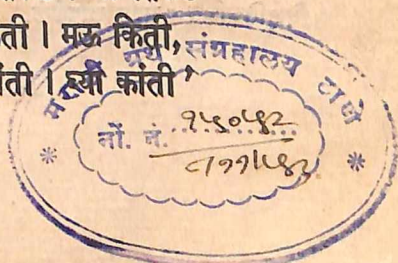 ती । मऊ किती,
ांती । घ्यी कांती’
मराठी ग्रंथ संग्रहालय ठाणे
नों. नं. १५०५२
८११५२